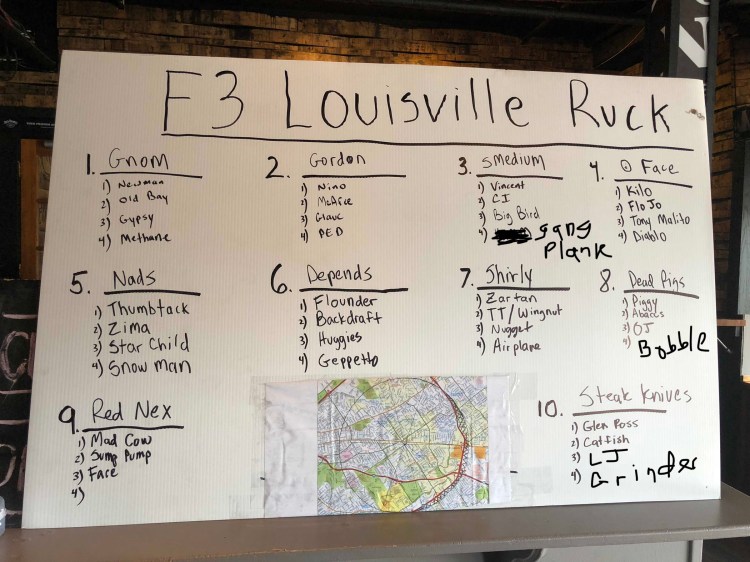 F3 Louisville Ruck
1. Gnom
1) Newman
2) Old Bay
3) Gypsy
4) Methane
2. Gordon
1) Nino
2) McAfee
3) Glauc
4) PED
3. Smedium
1) Vincent
2) CI
3) Big Bird
4) gang
Plank
4. Face
1) Kilo
2) FloJo
3) Tony Malito
4) Diablo
5. Nads
1) Thumbtack
2) Zima
3) Star Child
4) Snow Man
6. Depends
1) Flounder
2) Backdraft
3) Huggies
4) Geppetto
7. Shirly
1) Zartan
2) TT/Wingnut
3) Nugget
4) Airplane
8. Dead Pigs
1) Piggy
2) Abacus
3) OJ
4) Bobble
9. Red Nex
1) Mad Cow
2) Sump Pump
3) Face
4)
10. Steak Knives
1) Glen Ross
2) Catfish
3) LJ
4) Grinder